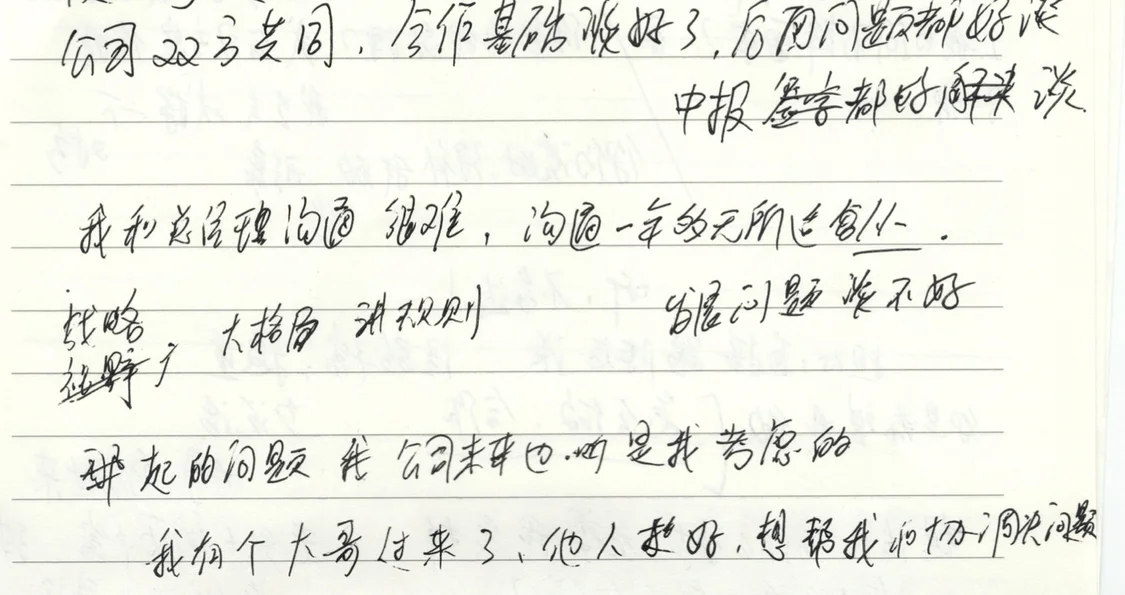 公司双方共同,合作基础谈好了,后面问题都好谈
申报 签字都好解决 谈
我和总经理沟通很难,沟通一年多无所
战略 大格局 讲规则 发展问题谈不好
视野广
起的问题 我 公司未来也 是我考虑的
我有个大哥过来了,他人挺好,想帮我们协调决问题